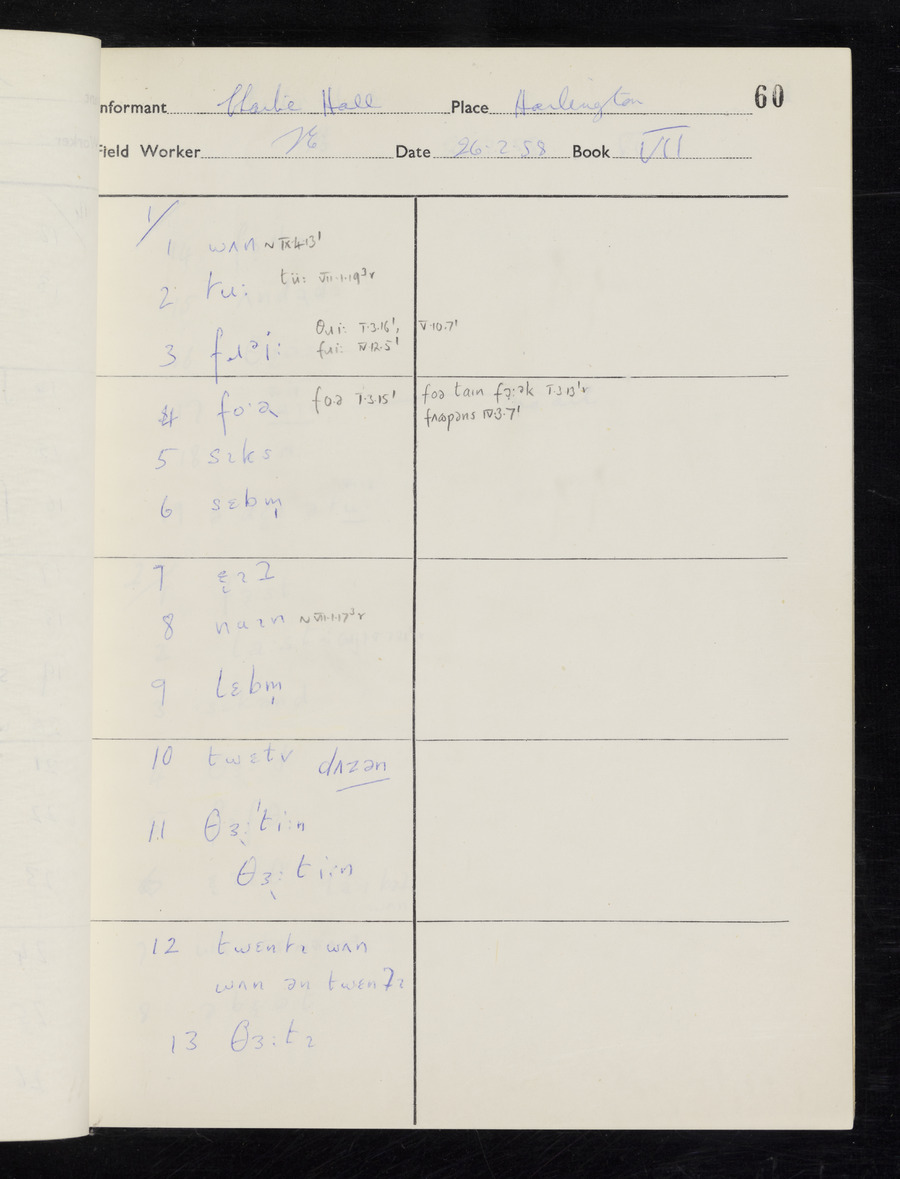 Informant Charlie Hall Place Harlington 60
Field Worker Date 26·2·58 Book VII
1/
1 wʌn ~ IX·4·13¹
2 tu: tü: VII·1·19³r
3 fɹəi: θɹi: I·3·16¹, V·10·7¹
fɹi: IV·12·5¹
4 fo·ə foə I·3·15¹ foə tain fɔ̣:ək I·3·13¹r
5 sɪks
6 sɛbm̩
7 ɛ̣ɪʔ
8 naɪn ~ VII·1·17³r
9 lɛbm̩
10 twɛlv dʌzən
11 θɜ:ˈti:n
θɜ:ti:n
12 twɛntɪ wʌn
wʌn ən twɛnʔɪ
13 θɜ:tɪ